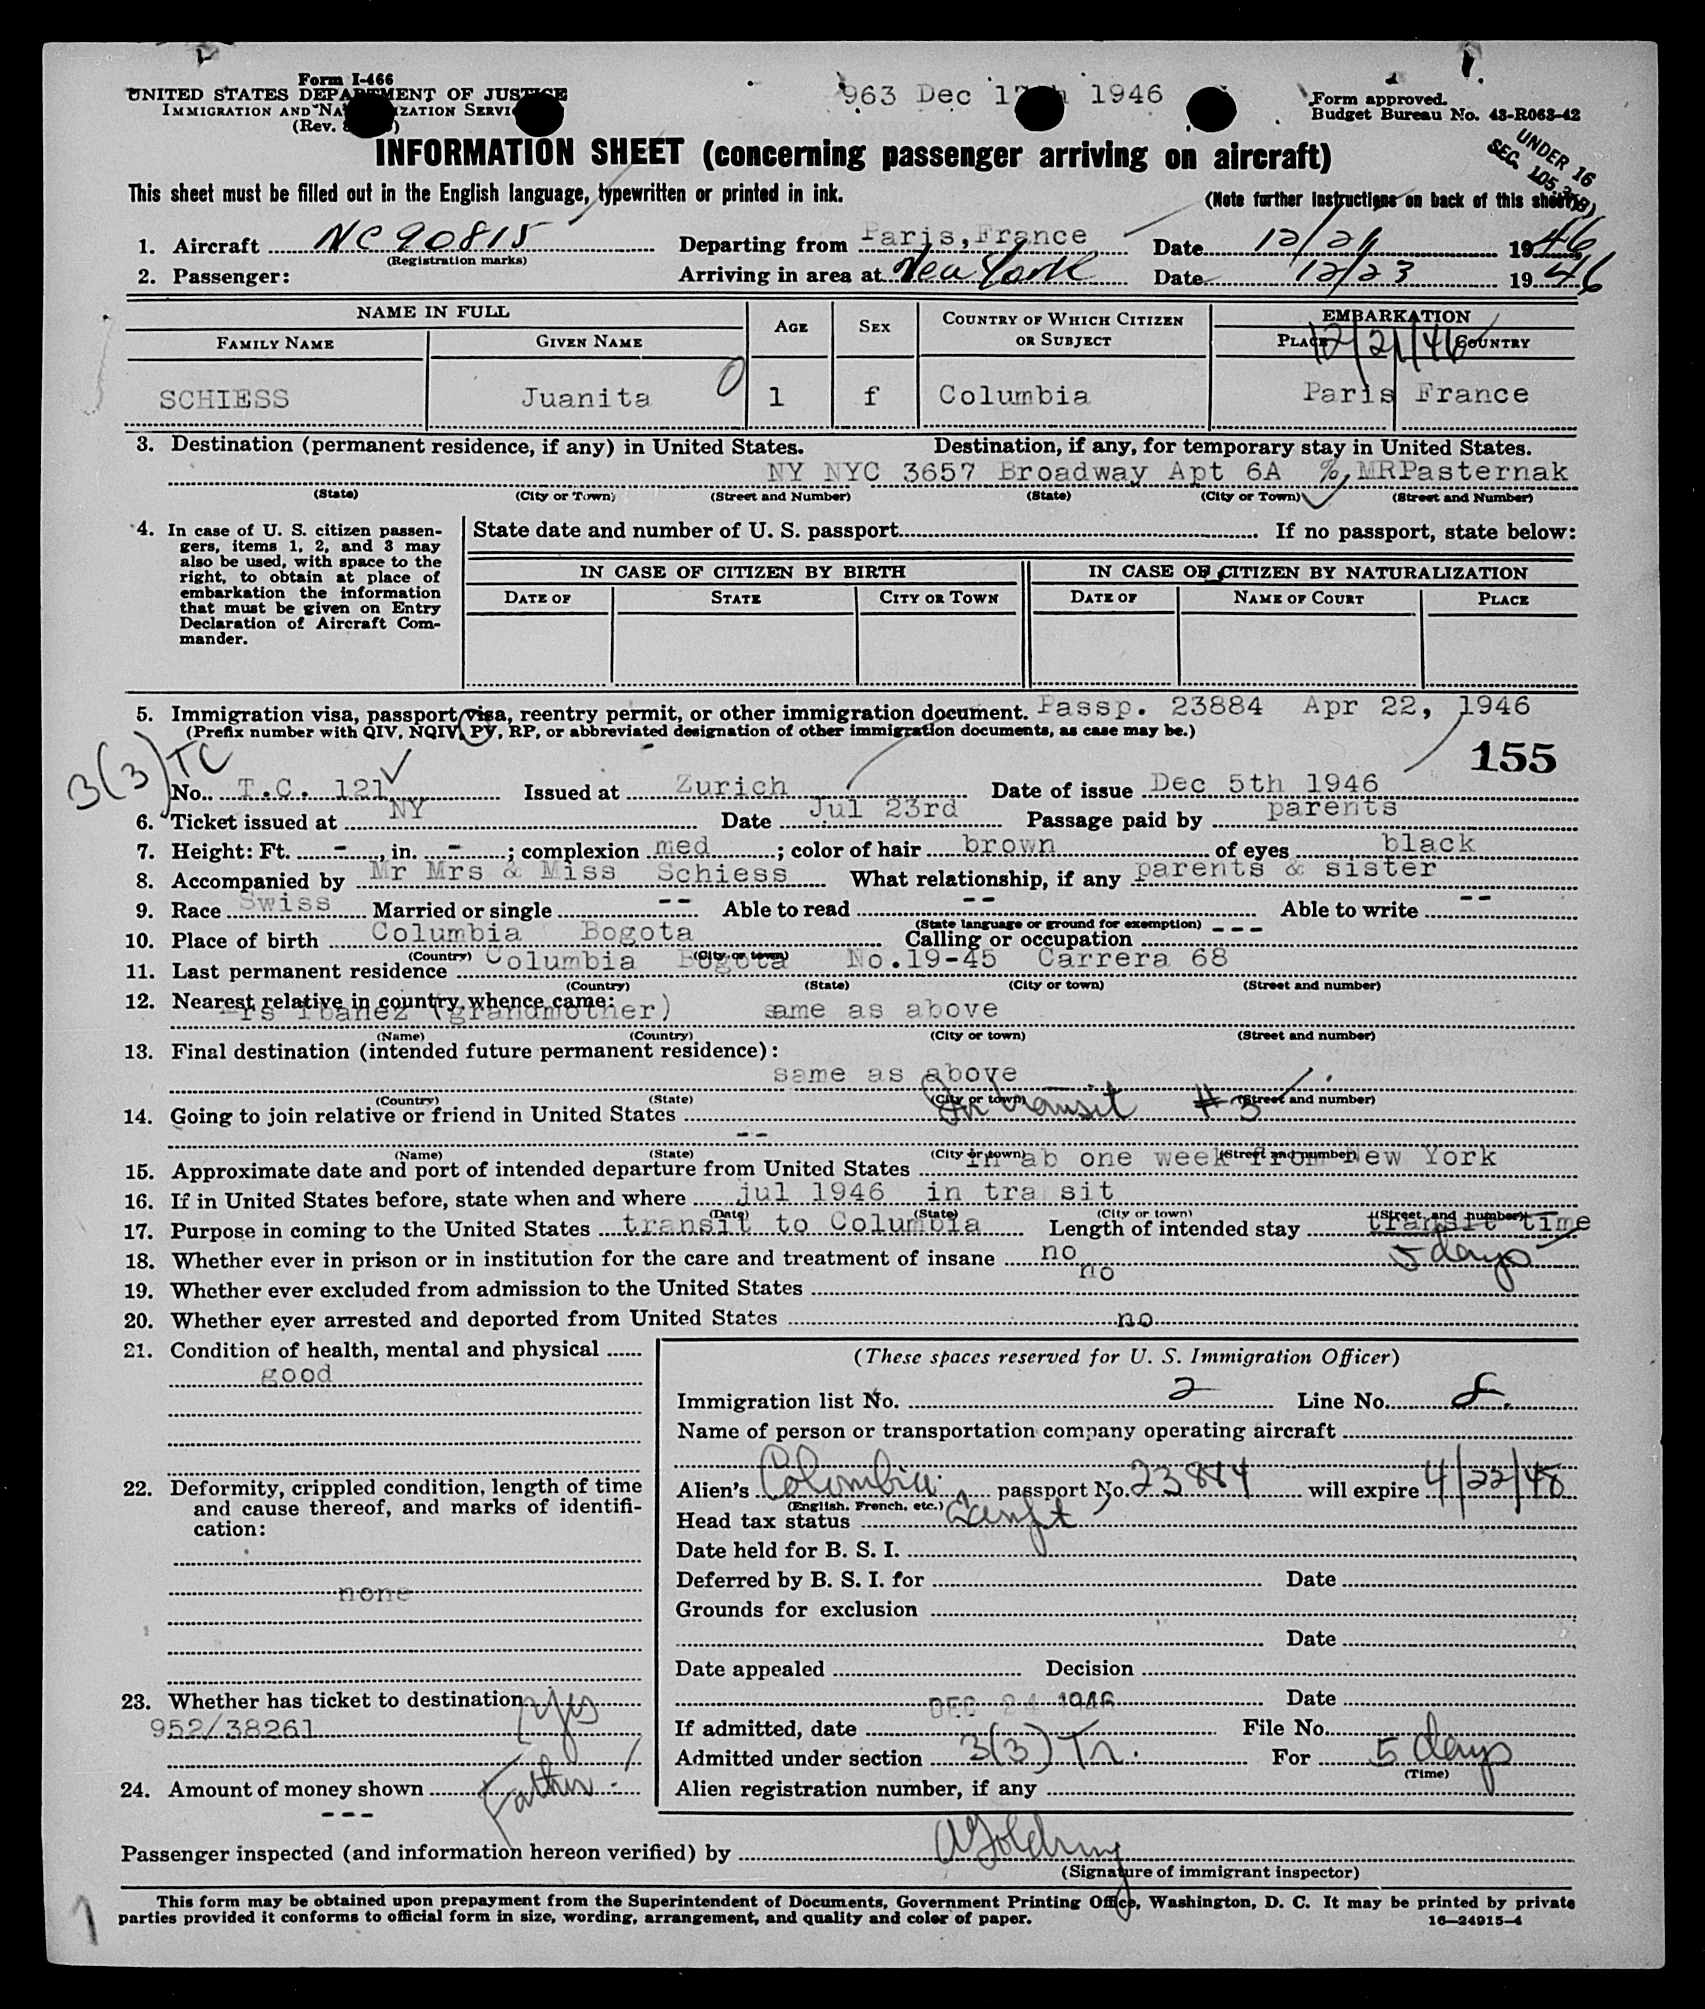 Form I-466
UNITED STATES DEPARTMENT OF JUSTICE
IMMIGRATION AND NATURALIZATION SERVICE
(Rev.
963 Dec 17th 1946
Form approved.
Budget Bureau No. 43-R063-42
INFORMATION SHEET (concerning passenger arriving on aircraft)
UNDER 16
SEC. 105.3(B)
This sheet must be filled out in the English language, typewritten or printed in ink.
(Note further instructions on back of this sheet)
1. Aircraft NC90815 Departing from Paris, France Date 12/21 1946
(Registration marks)
2. Passenger: Arriving in area at New York Date 12/23 1946
NAME IN FULL AGE SEX COUNTRY OF WHICH CITIZEN OR SUBJECT EMBARKATION
FAMILY NAME GIVEN NAME PLACE 12/21/46 COUNTRY
SCHIESS Juanita 0 1 f Columbia Paris France
3. Destination (permanent residence, if any) in United States. Destination, if any, for temporary stay in United States.
NY NYC 3657 Broadway Apt 6A %, MRPasternak
(State) (City or Town) (Street and Number) (State) (City or Town) (Street and Number)
4. In case of U. S. citizen passengers, items 1, 2, and 3 may also be used, with space to the right, to obtain at place of embarkation the information that must be given on Entry Declaration of Aircraft Commander.
State date and number of U. S. passport If no passport, state below:
IN CASE OF CITIZEN BY BIRTH IN CASE OF CITIZEN BY NATURALIZATION
DATE OF STATE CITY OR TOWN DATE OF NAME OF COURT PLACE
5. Immigration visa, passport visa, reentry permit, or other immigration document. Passp. 23884 Apr 22, 1946
(Prefix number with QIV, NQIV, PV, RP, or abbreviated designation of other immigration documents, as case may be.)
155
3(3) TC
No. T.C. 121 Issued at Zurich Date of issue Dec 5th 1946
6. Ticket issued at NY Date Jul 23rd Passage paid by parents
7. Height: Ft. -, in. -; complexion med; color of hair brown of eyes black
8. Accompanied by Mr Mrs & Miss Schiess What relationship, if any parents & sister
9. Race Swiss Married or single -- Able to read -- Able to write --
(State language or ground for exemption)
10. Place of birth Columbia Bogota Calling or occupation ---
(Country) (City or town)
11. Last permanent residence Columbia Bogota No.19-45 Carrera 68
(Country) (State) (City or town) (Street and number)
12. Nearest relative in country whence came:
Mrs Ibanez (grandmother) same as above
(Name) (Country) (City or town) (Street and number)
13. Final destination (intended future permanent residence):
same as above
(Country) (State) (City or town) (Street and number)
14. Going to join relative or friend in United States In transit #3
--
(Name) (State) (City or town) (Street and number)
15. Approximate date and port of intended departure from United States in ab one week from New York
16. If in United States before, state when and where jul 1946 in tra sit
(Date) (State) (City or town) (Street and number)
17. Purpose in coming to the United States transit to Columbia Length of intended stay transit time
5 days
18. Whether ever in prison or in institution for the care and treatment of insane no
19. Whether ever excluded from admission to the United States no
20. Whether ever arrested and deported from United States no
21. Condition of health, mental and physical
good
22. Deformity, crippled condition, length of time and cause thereof, and marks of identification:
none
23. Whether has ticket to destination Yes
952/38261
24. Amount of money shown Father
---
(These spaces reserved for U. S. Immigration Officer)
Immigration list No. 2 Line No. 8
Name of person or transportation company operating aircraft
Alien's Colombia passport No. 23884 will expire 4/22/48
(English, French, etc.)
Head tax status Exempt
Date held for B. S. I.
Deferred by B. S. I. for Date
Grounds for exclusion
Date
Date appealed Decision
Date
If admitted, date DEC 24 1946 File No.
Admitted under section 3(3) Tr. For 5 days
(Time)
Alien registration number, if any
Passenger inspected (and information hereon verified) by
(Signature of immigrant inspector)
This form may be obtained upon prepayment from the Superintendent of Documents, Government Printing Office, Washington, D. C. It may be printed by private
parties provided it conforms to official form in size, wording, arrangement, and quality and color of paper.
16—24915-4
1